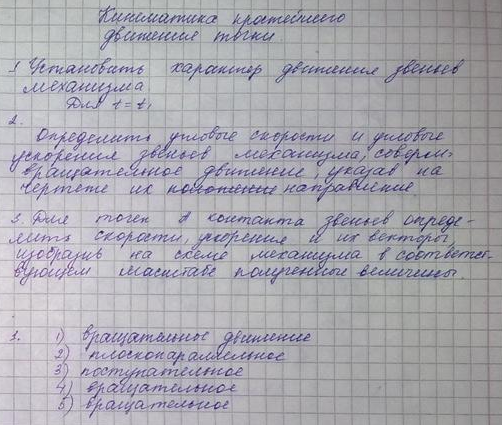 Кинематика простейшего
движения точки
1 Установить характер движения звеньев
механизма
Для t = t₁
2.
Определить угловые скорости и угловые
ускорения звеньев механизма, соверш-
вращательное движение, указав на
чертеже их положение направление
3. Для точек А контакта звеньев опреде-
лить скорости, ускорения и их векторы,
изобразив на схеме механизма в соответст-
вующем масштабе полученные величины.
1. 1) вращательное движение
2) плоскопараллельное
3) поступательное
4) вращательное
5) вращательное